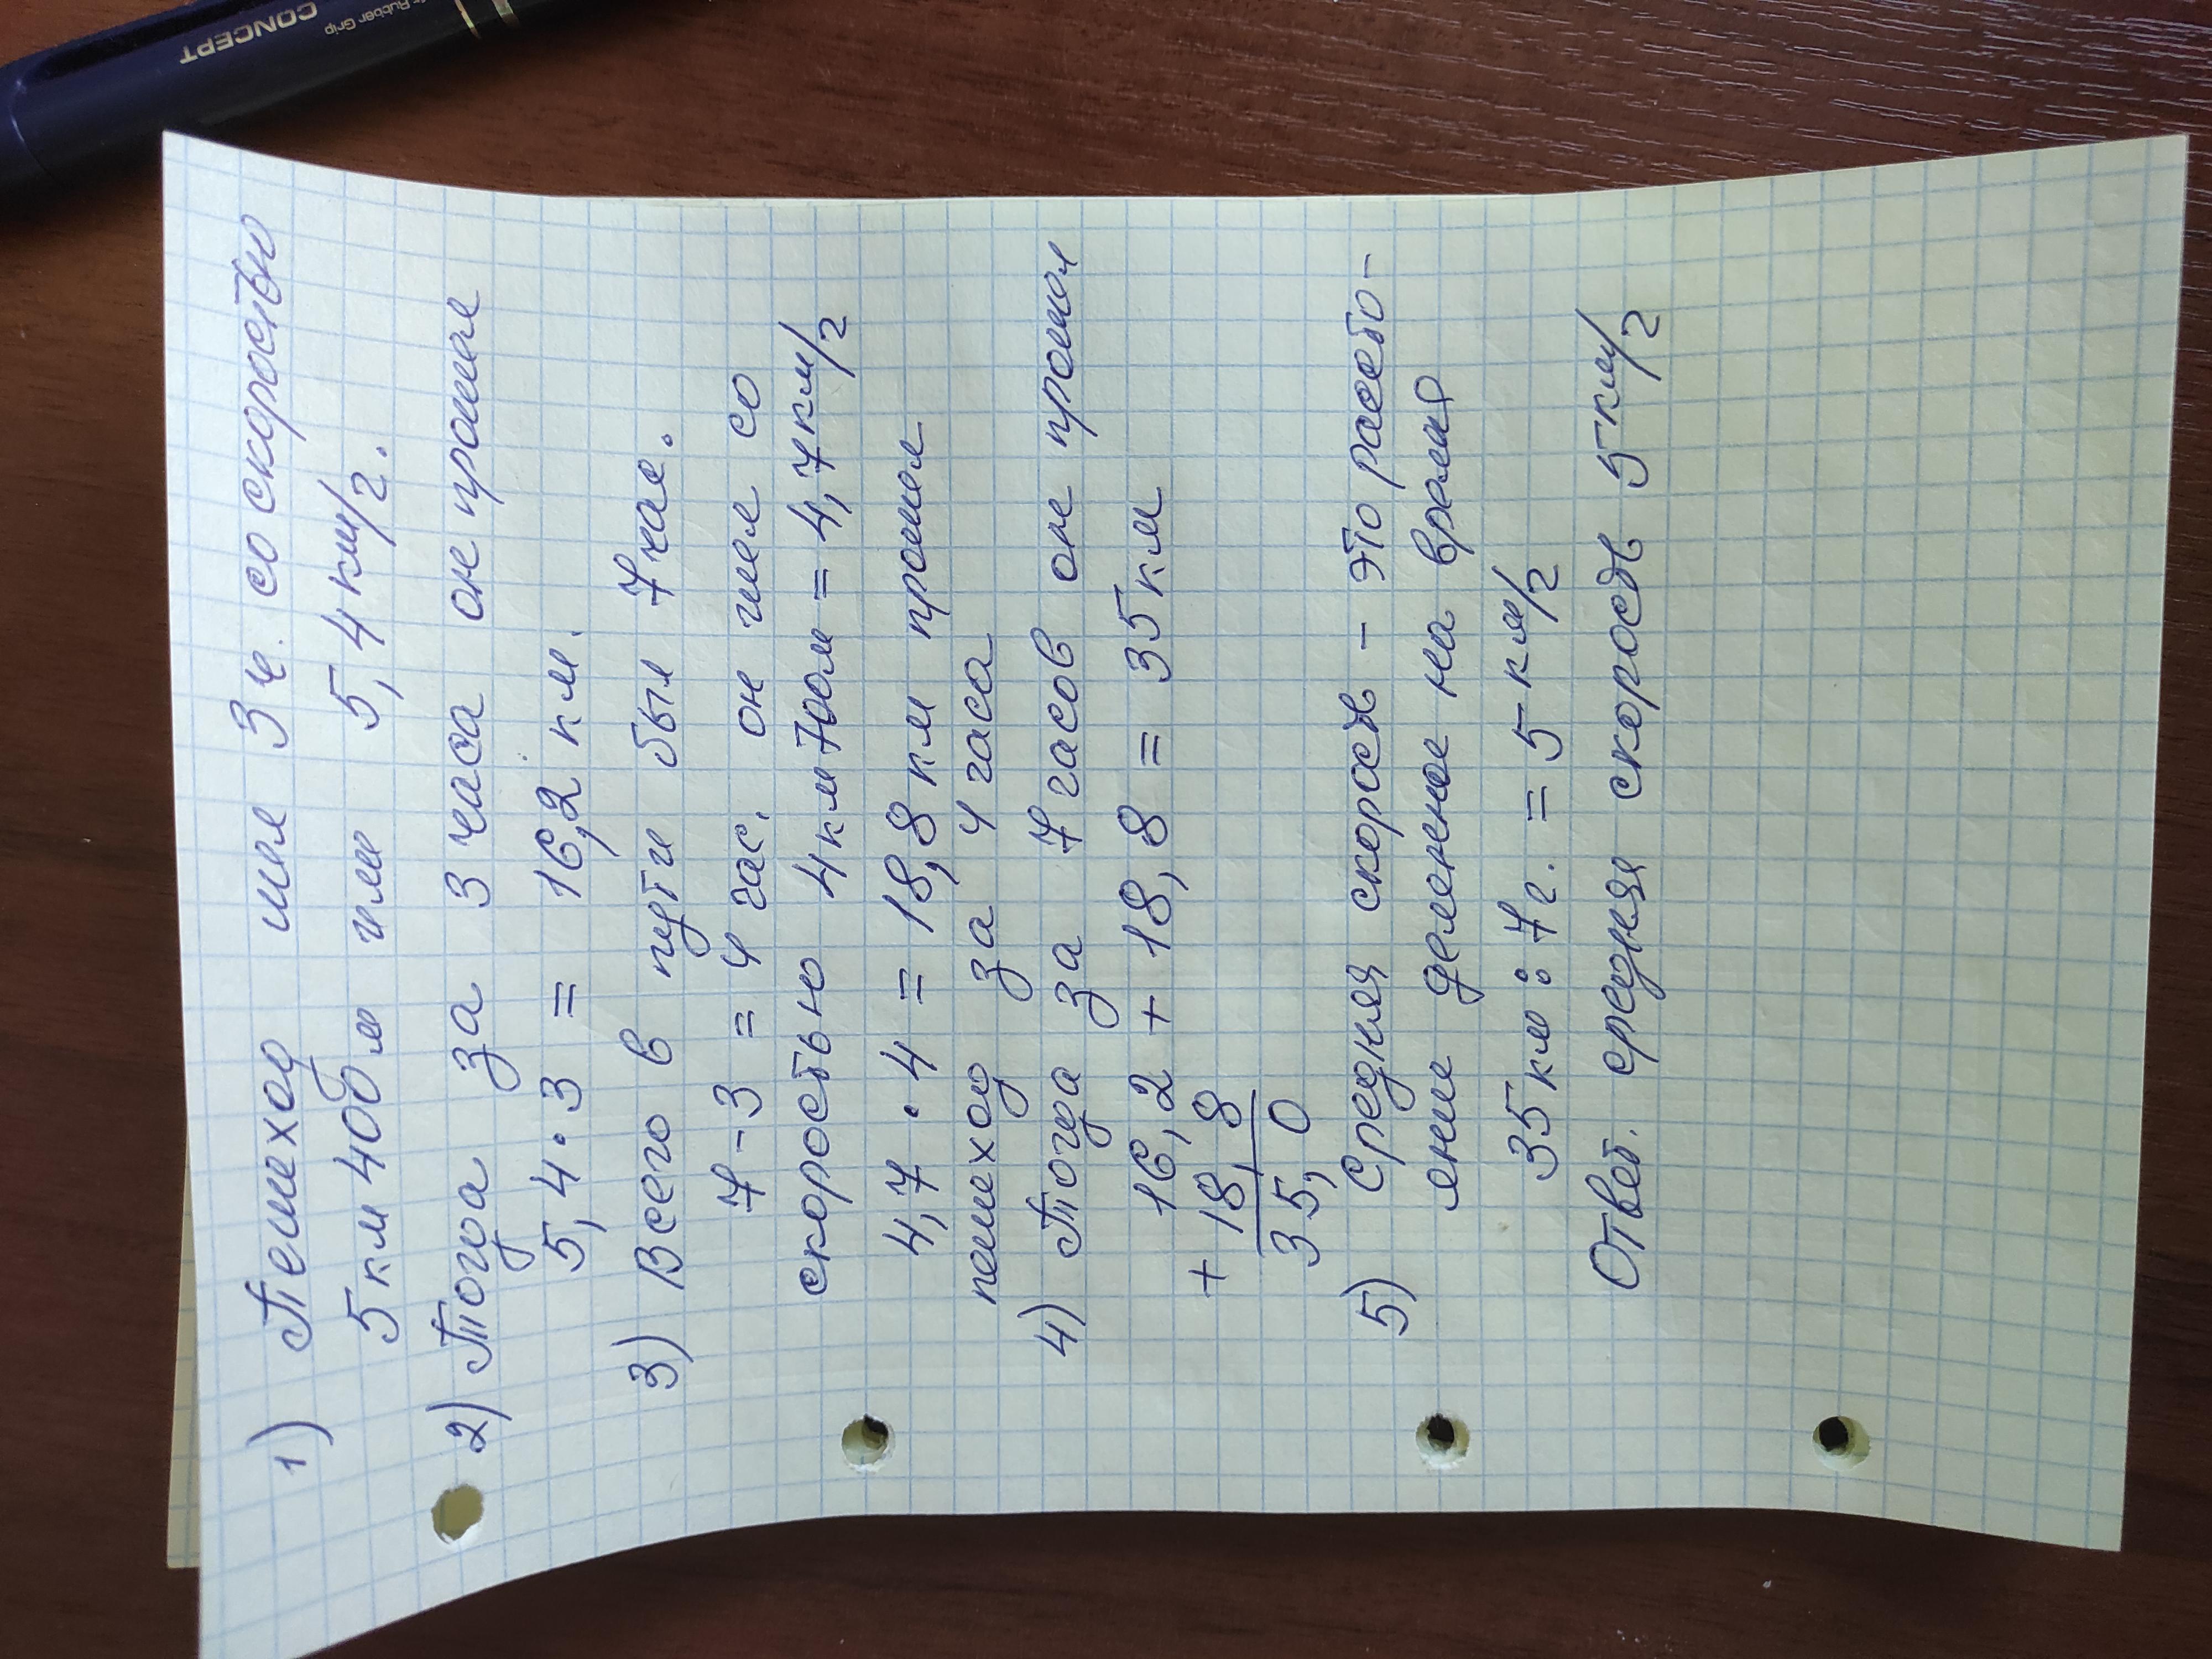 1) Пешеход шел 3 ч. со скоростью
5 км 400 м или 5,4 км/г.
2) Тогда за 3 часа он прошел
5,4 · 3 = 16,2 км.
3) Всего в пути был 7 час.
7 - 3 = 4 час. он шел со
скоростью 4 км 700 м = 4,7 км/г
4,7 · 4 = 18,8 км прошел
пешеход за 4 часа
4) Тогда за 7 часов он прошел
16,2 + 18,8 = 35 км
+ 16,2
18,8
35,0
5) Средняя скорость - это рассто-
яние деленное на время
35 км : 7 г. = 5 км/г
Ответ. средняя скорость 5 км/г
CONCEPT
Rubber Grip